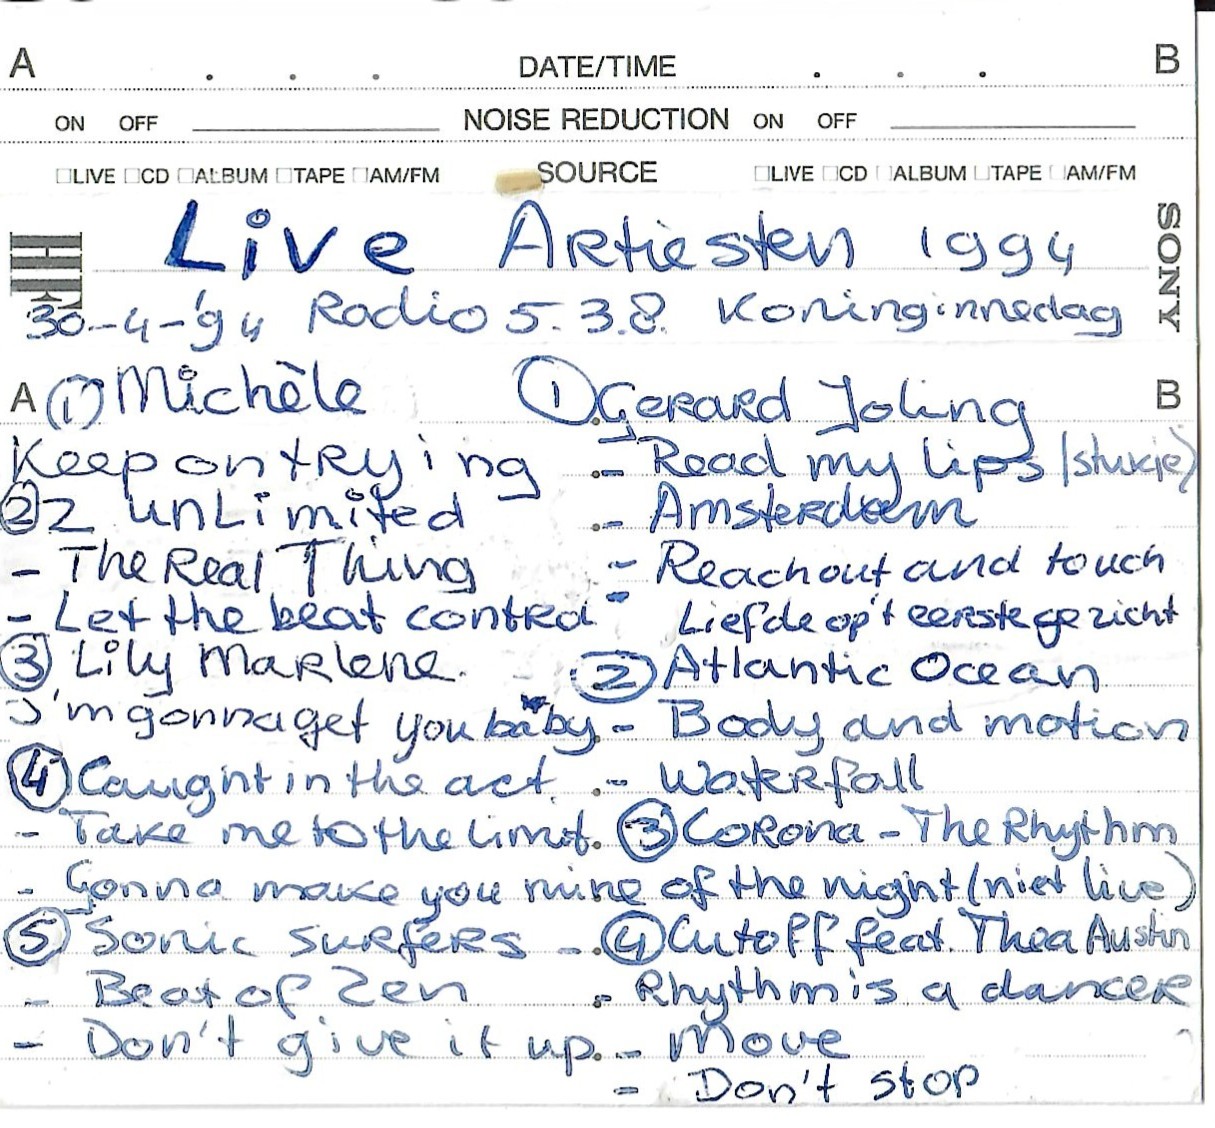 A DATE/TIME B
ON OFF NOISE REDUCTION ON OFF
LIVE CD ALBUM TAPE AM/FM SOURCE LIVE CD ALBUM TAPE AM/FM
HF Live Artiesten 1994 SONY
30-4-'94 Radio 5.3.8. Koninginnedag
A ① Michèle
Keep on trying
② 2 unLimited
- The Real Thing
- Let the beat control
③ Lily Marlene.
I'm gonna get you baby.
④ Caught in the act.
- Take me to the limit.
- Gonna make you mine
⑤ Sonic surfers -
- Beat of Zen
- Don't give it up.
① Gerard Joling B
- Read my lips (stukje)
- Amsterdam
- Reach out and touch
- Liefde op 't eerste gezicht
② Atlantic Ocean
- Body and motion
- Waterfall
③ Corona - The Rhythm
of the night (niet live)
④ Cutoff feat. Thea Austin
- Rhythm is a dancer
- Move
- Don't stop